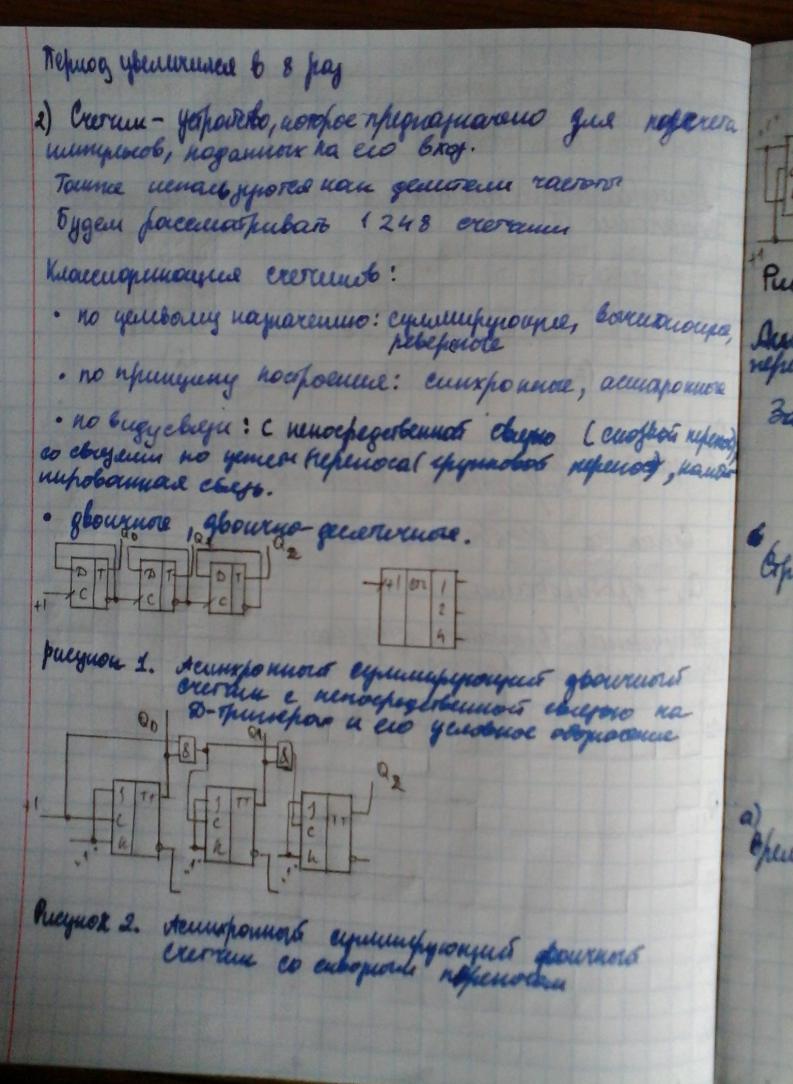 Период увеличился в 8 раз
2) Счетчик – устройство, которое предназначено для подсчета
импульсов, поданных на его вход.
Также используются как делители частоты
Будем рассматривать 1 2 4 8 счетчики
Классификация счетчиков:
• по целевому назначению: суммирующие, вычитающие,
реверсные
• по принципу построения: синхронные, асинхронные
• по виду связи: с непосредственной связью (сквозной перенос),
со связями по цепям переноса (групповой перенос), комби
нированная связь.
• двоичные, двоично-десятичные.
Q0 Q1 Q2
D T D T D T
+1 C C C
+1 CT 1
2
4
Рисунок 1. Асинхронный суммирующий двоичный
счетчик с непосредственной связью на
D-триггерах и его условное обозначение
Q0 Q1
& &
Q2
J TT J TT J TT
+1 C C C
"1" K "1" K "1" K
Рисунок 2. Асинхронный суммирующий двоичный
счетчик со сквозным переносом
"1"
+1
Ри
а)